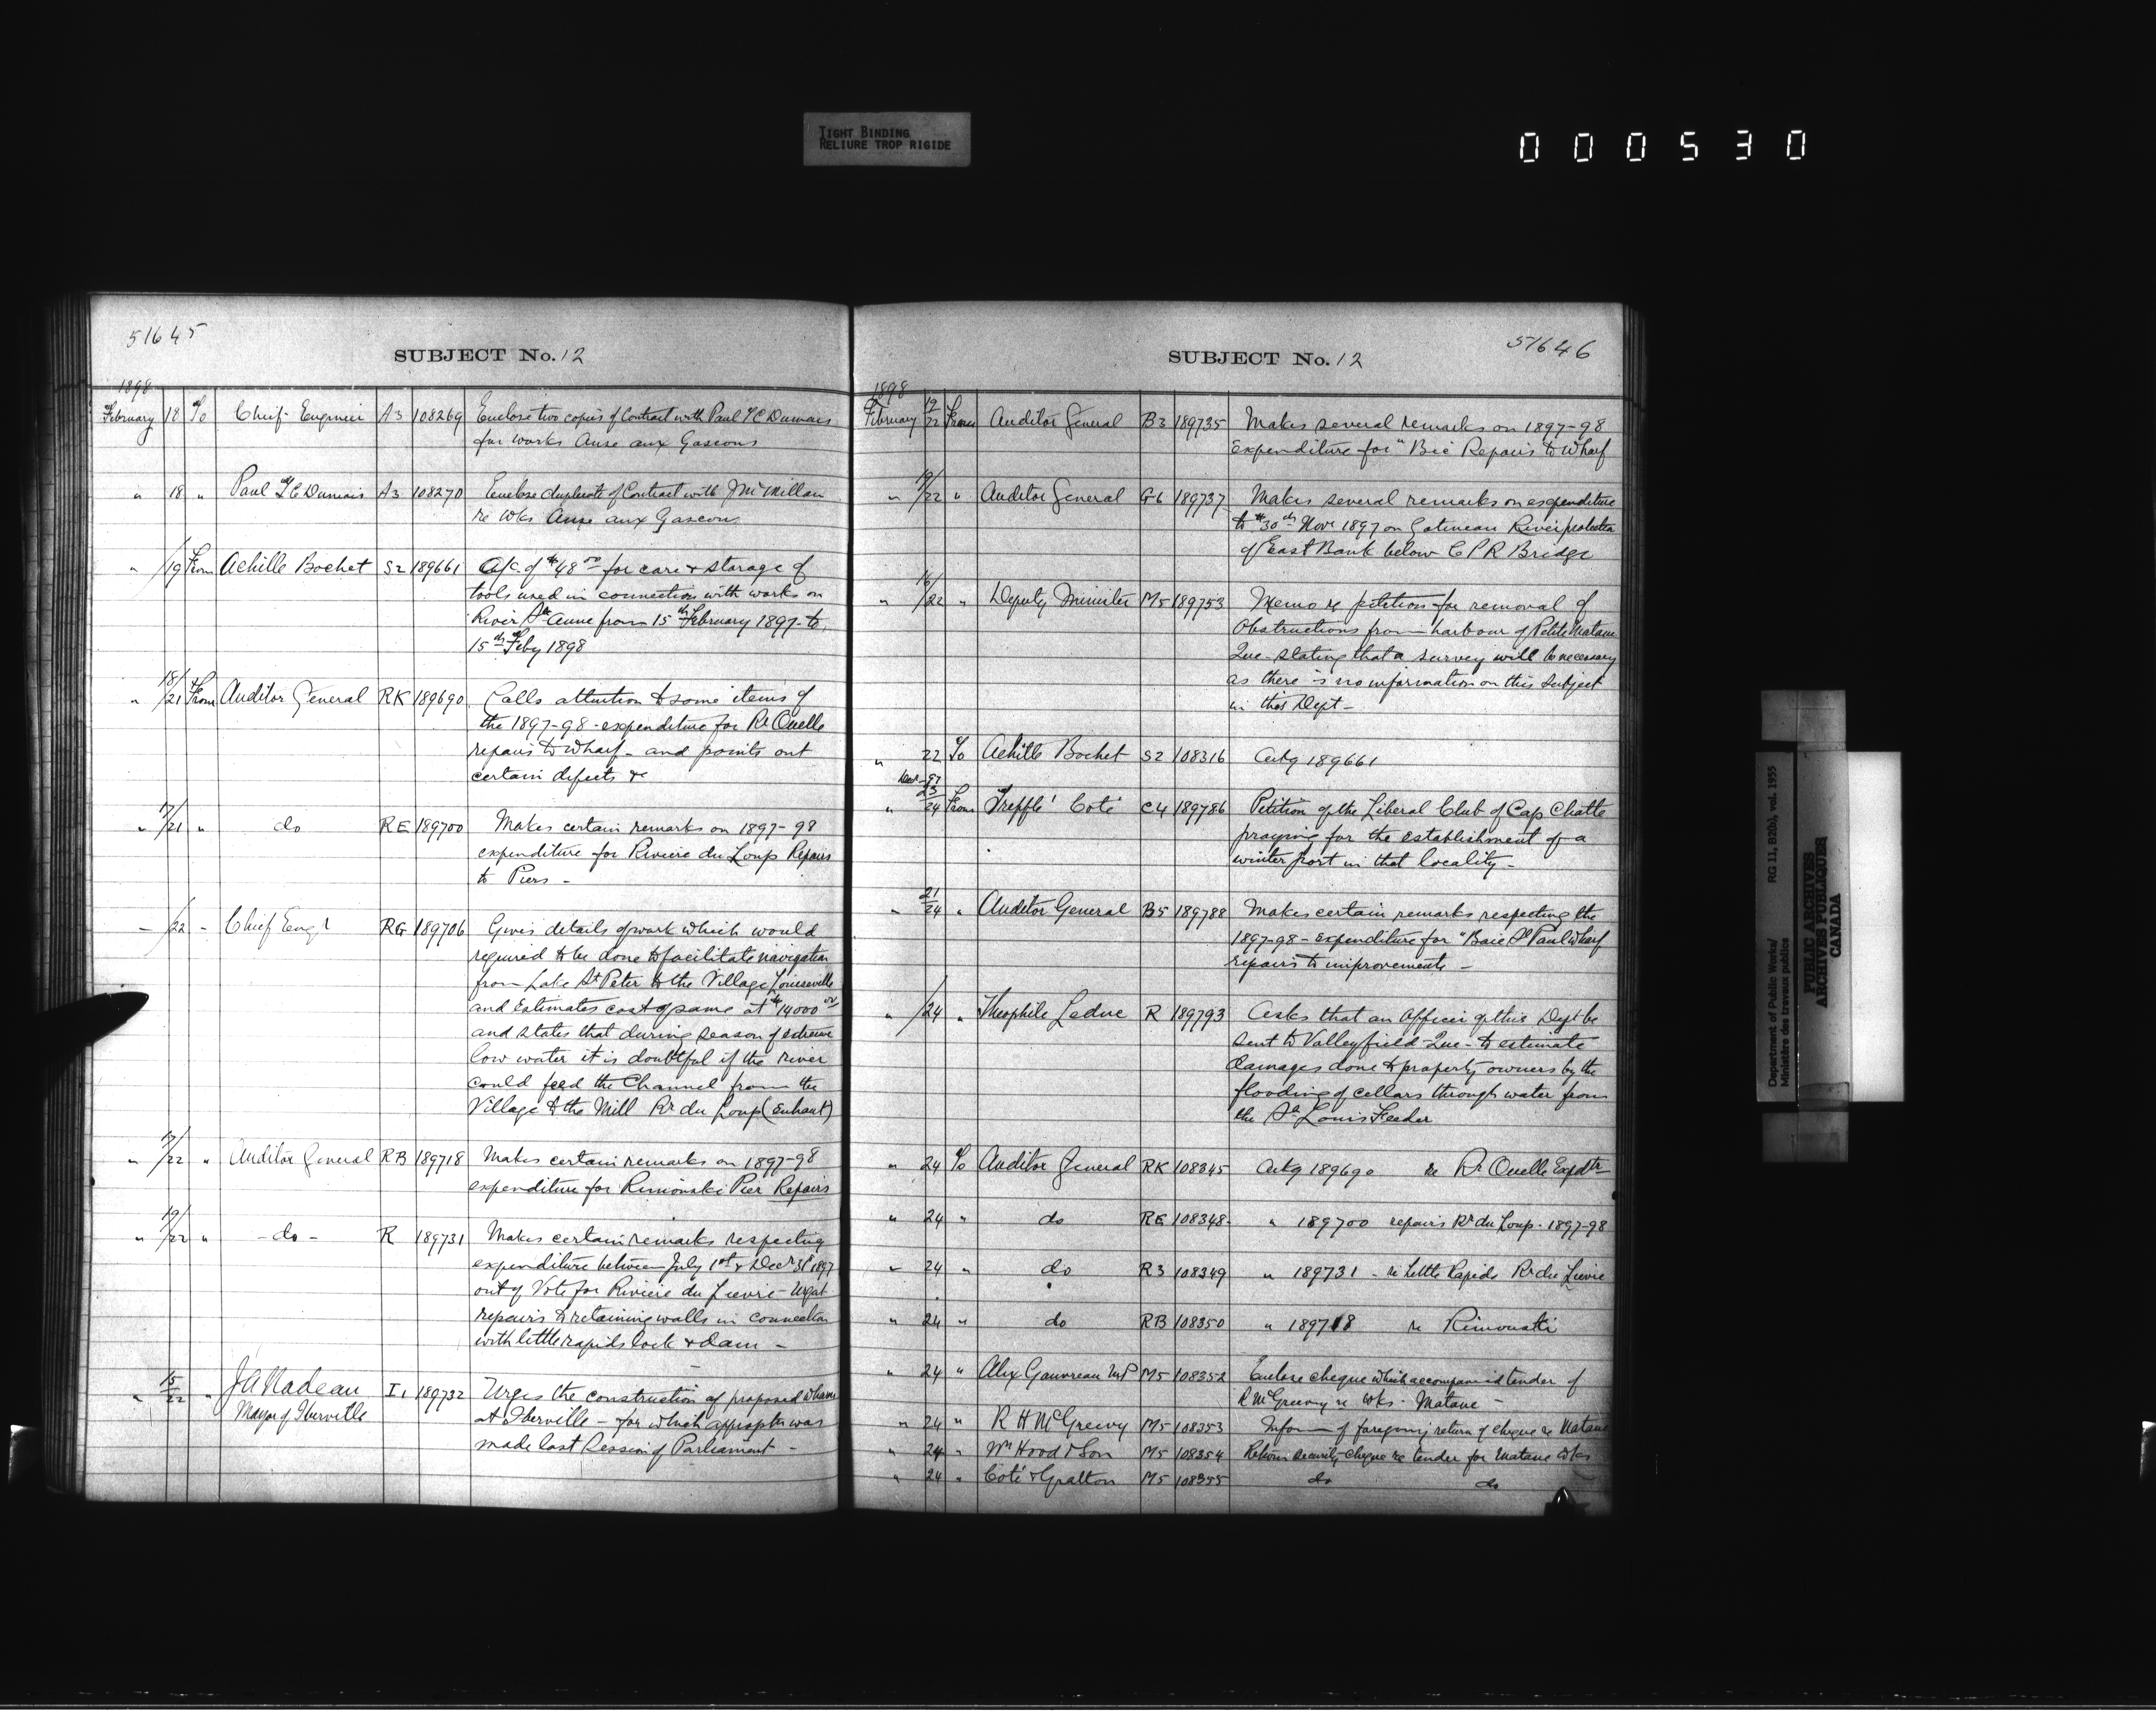 TIGHT BINDING
RELIURE TROP RIGIDE
000530
51645
SUBJECT No. 12
1898
February 18 To Chief Engineer A3 108269 Enclose two copies of Contract with Paul T C Dumais
for works Anse aux Gascons
" 18 " Paul T C Dumais A3 108270 Enclose duplicate of Contract with J McMillan
re wks Anse aux Gascons
" /19 From Achille Bochet S2 189661 a/c of $48.00 for care & storage of
tools used in connection with works on
River Ste Anne from 15th February 1897 to
15th Feby 1898
" 18/21 From Auditor General RK 189690 Calls attention to some items of
the 1897-98 expenditure for Rr Ouelle
repairs to wharf - and points out
certain defects &c
" 17/21 " do RE 189700 Makes certain remarks on 1897-98
expenditure for Riviere du Loup Repairs
to Piers -
" /22 " Chief Engr RG 189706 Gives details of work which would
required to be done to facilitate navigation
from Lake St Peter to the Village Louiseville
and Estimates cost of same at $14000.00
and states that during season of extreme
low water it is doubtful if the river
could feed the Channel from the
Village to the Mill Rr du Loup (Enhaut)
" 17/22 " Auditor General RB 189718 Makes certain remarks on 1897-98
expenditure for Rimouski Pier Repairs
" 19/22 " - do - R 189731 Makes certain remarks respecting
expenditure between July 1st & Decr 31st 1897
out of Vote for Riviere du Lievre - Urgt
repairs to retaining walls in connection
with little rapids lock & dam -
" 15/22 " J A Nadeau I1 189732 Urges the construction of proposed wharf
Mayor of Iberville at Iberville - for which appropn was
made last Session of Parliament -
51646
SUBJECT No. 12
1898
February 19/22 From Auditor General B3 189735 Makes several remarks on 1897-98
expenditure for "Bic Repairs to Wharf
" 19/22 " Auditor General G6 189737 Makes several remarks on expenditure
to 30th Novr 1897 on Gatineau River protection
of East Bank below C P R Bridge
" 16/22 " Deputy Minister M5 189753 Memo re petition for removal of
Obstructions from harbour of Petite Matane
Que. stating that a survey will be necessary
as there is no information on this subject
in this Dept -
" 22 To Achille Bochet S2 108316 Ackg 189661
Decr -97
" 23/24 From Treffle Coté C4 189786 Petition of the Liberal Club of Cap Chatte
praying for the establishment of a
winter port in that locality -
" 21/24 " Auditor General B5 189788 Makes certain remarks respecting the
1897-98 - expenditure for "Baie St Paul wharf
repairs to improvements -
" /24 " Theophile Leduc R 189793 Asks that an Officer of this Dept be
sent to Valleyfield Que - to estimate
damages done to property owners by the
flooding of cellars through water from
the St Louis Feeder
" 24 To Auditor General RK 108345 Ackg 189690 re Rr Ouelle Expdtr
" 24 " do RE 108348 " 189700 repairs Rr du Loup - 1897-98
" 24 " do R3 108349 " 189731 - re Little Rapids Rr du Lievre
" 24 " do RB 108350 " 189718 re Rimouski
" 24 " Alex Gauvreau MP M5 108352 Enclose cheque which accompanied tender of
R McGreevy re wks - Matane -
" 24 " R H McGreevy M5 108353 Inform of foregoing return of cheque re Matane
" 24 " Wm Hood & Son M5 108354 Return security cheque re tender for Matane wks
" 24 " Coté & Gratton M5 108355 do do
Department of Public Works/ RG 11, B2(b), vol. 1955
Ministère des travaux publics
PUBLIC ARCHIVES
ARCHIVES PUBLIQUES
CANADA